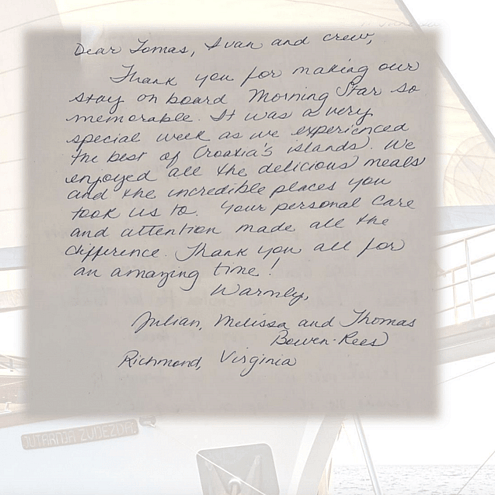 Dear Tomas, Ivan and crew,
Thank you for making our
stay on board Morning Star so
memorable. It was a very
special week as we experienced
the best of Croatia's islands. We
enjoyed all the delicious meals
and the incredible places you
took us to. Your personal care
and attention made all the
difference. Thank you all for
an amazing time!
Warmly,
Julian, Melissa and Thomas
Bowen-Rees
Richmond, Virginia